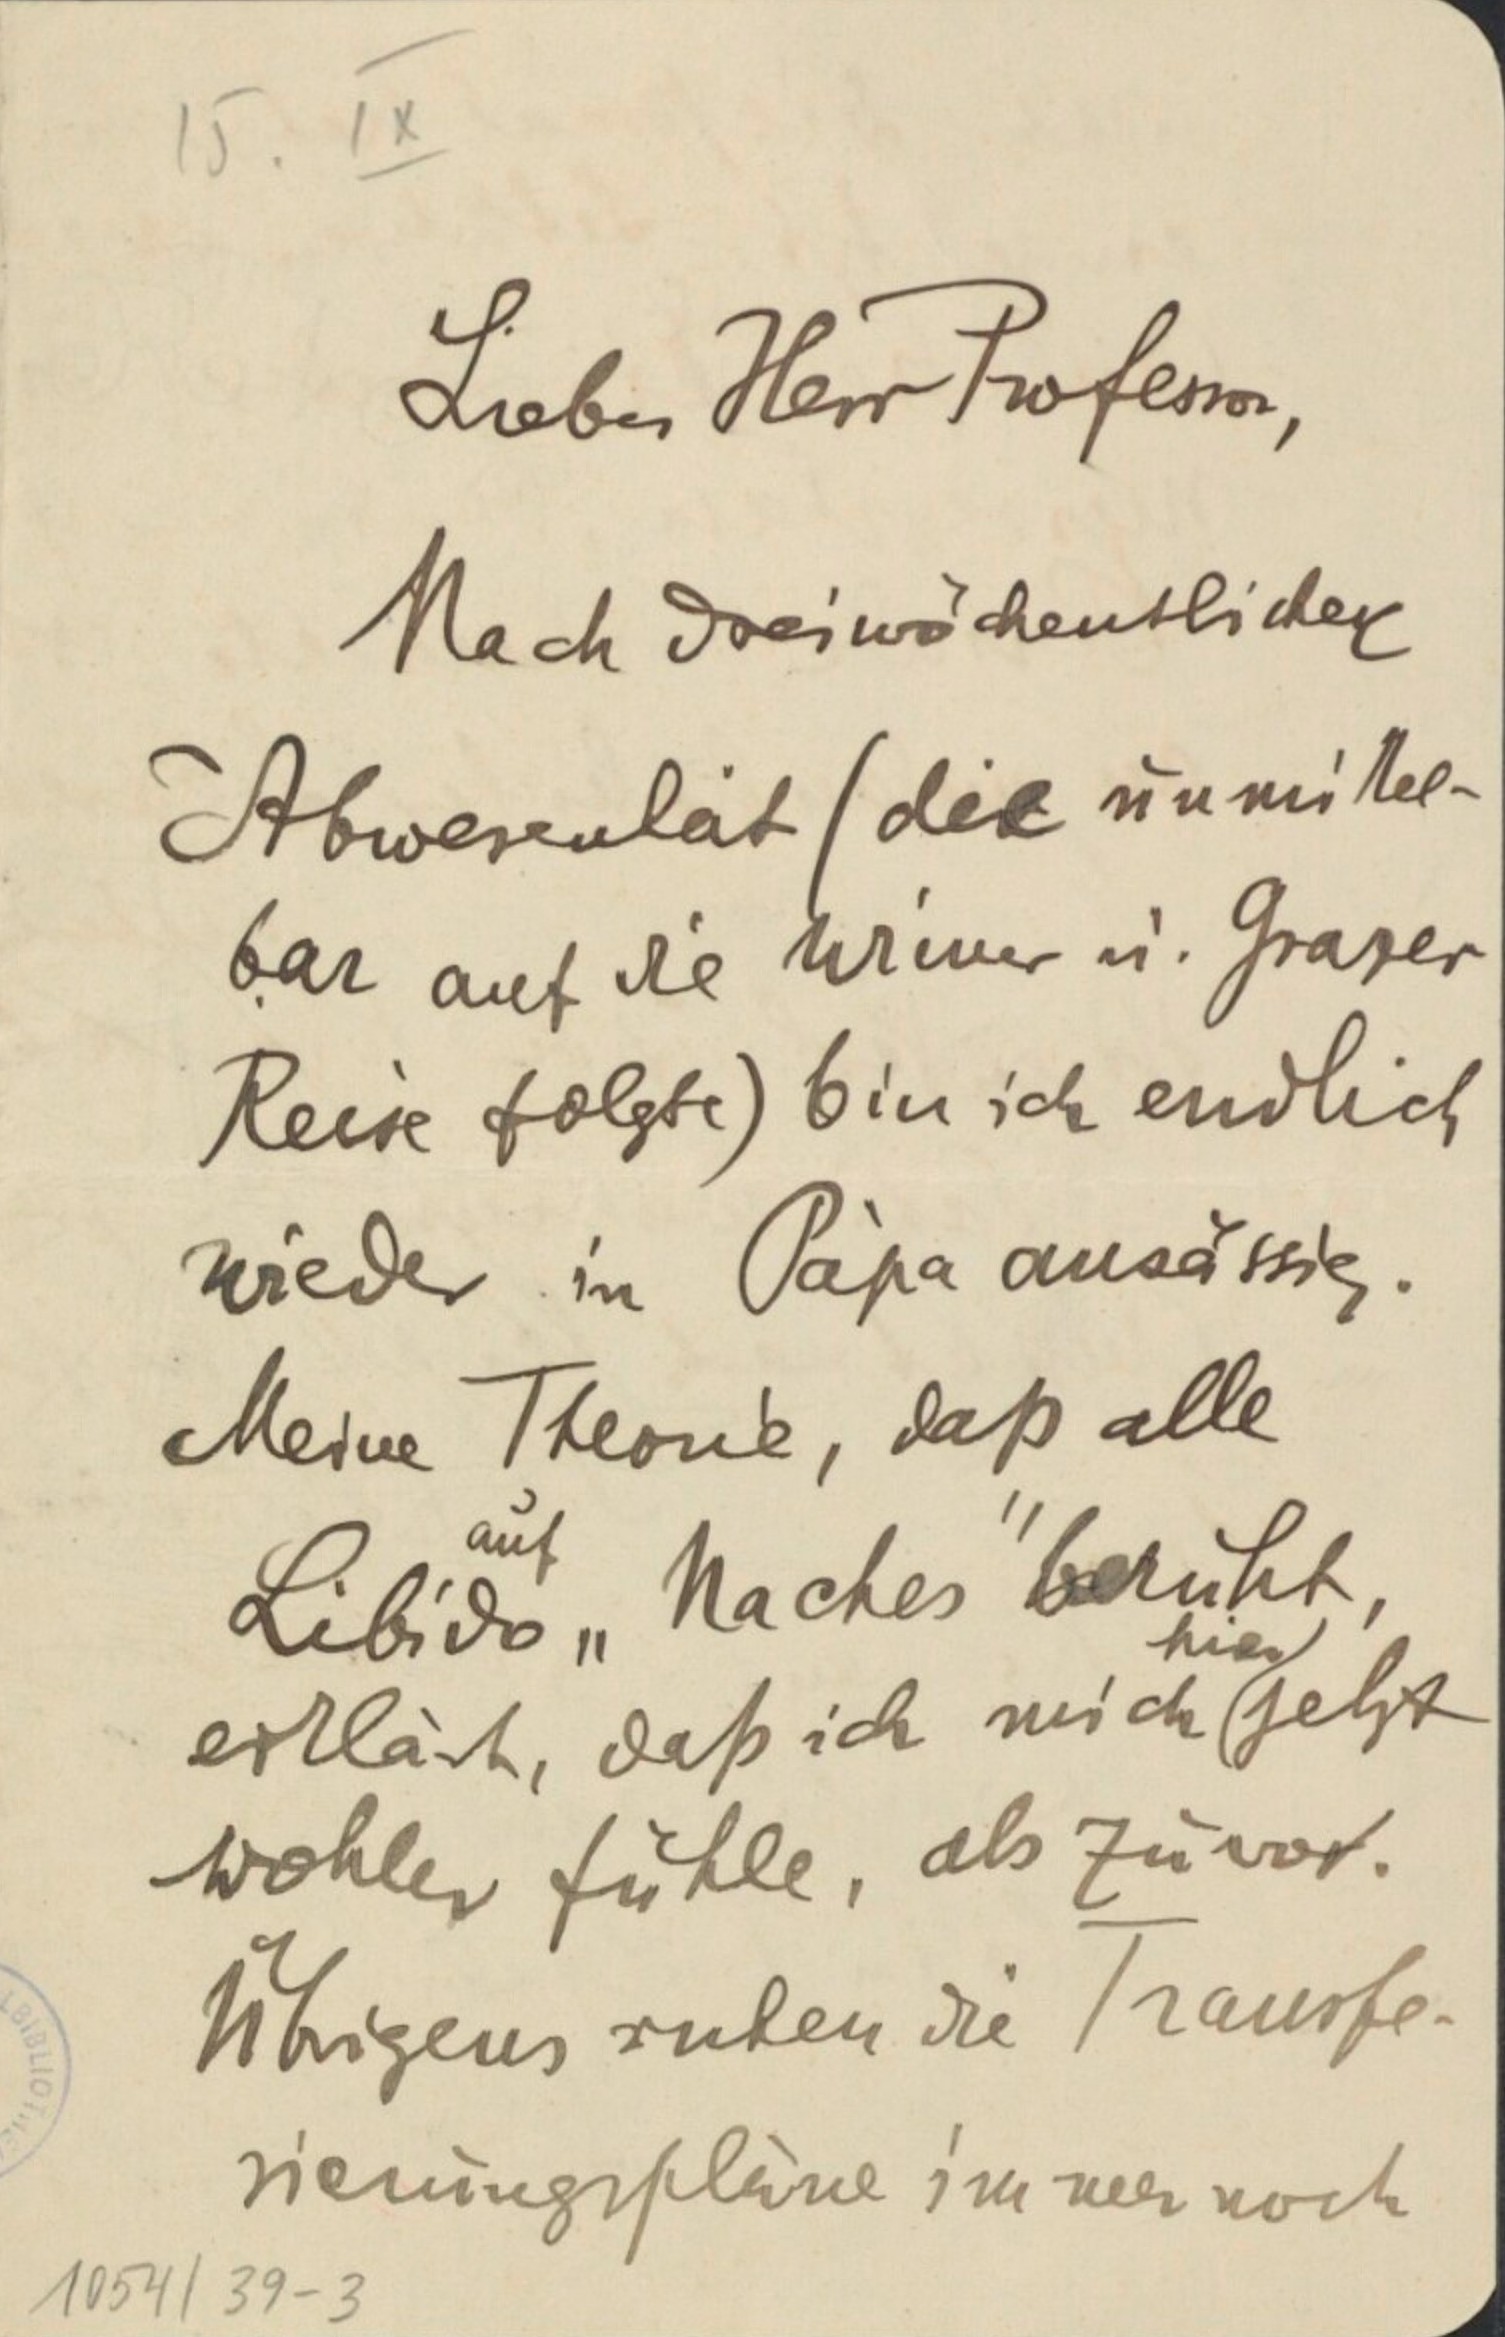 15. IX
Lieber Herr Professor,
Nach dreiwöchentlicher
Abwesenheit (die unmittel-
bar auf die Wiener u. Grazer
Reise folgte) bin ich endlich
wieder in Pápa ansässig.
Meine Theorie, daß alle
auf
Libido „Naches" beruht,
hier
erklärt, daß ich mich jetzt
wohler fühle, als zuvor.
Übrigens ruhen die Transfe-
rierungspläne immer noch
1054/39-3